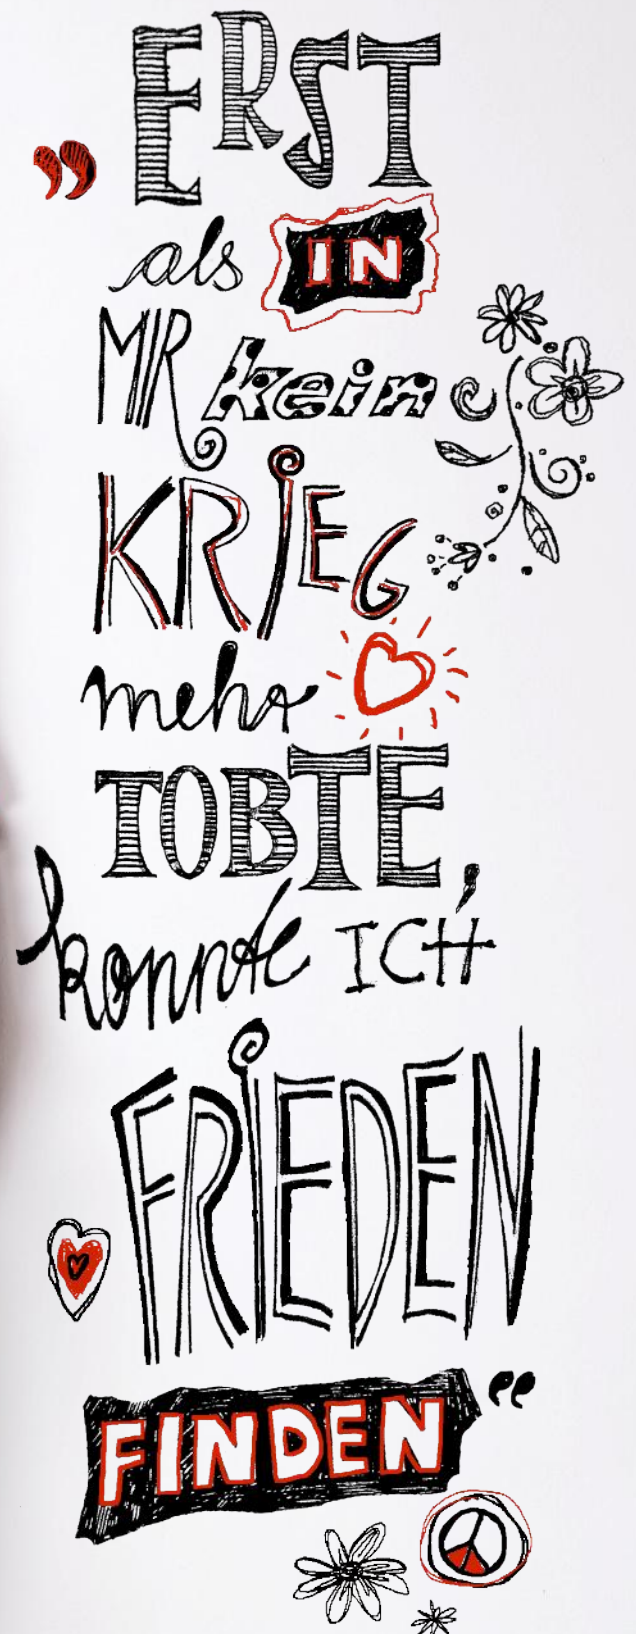 „ERST
als IN
MIR kein
KRIEG
mehr
TOBTE,
konnte ICH
FRIEDEN
FINDEN“